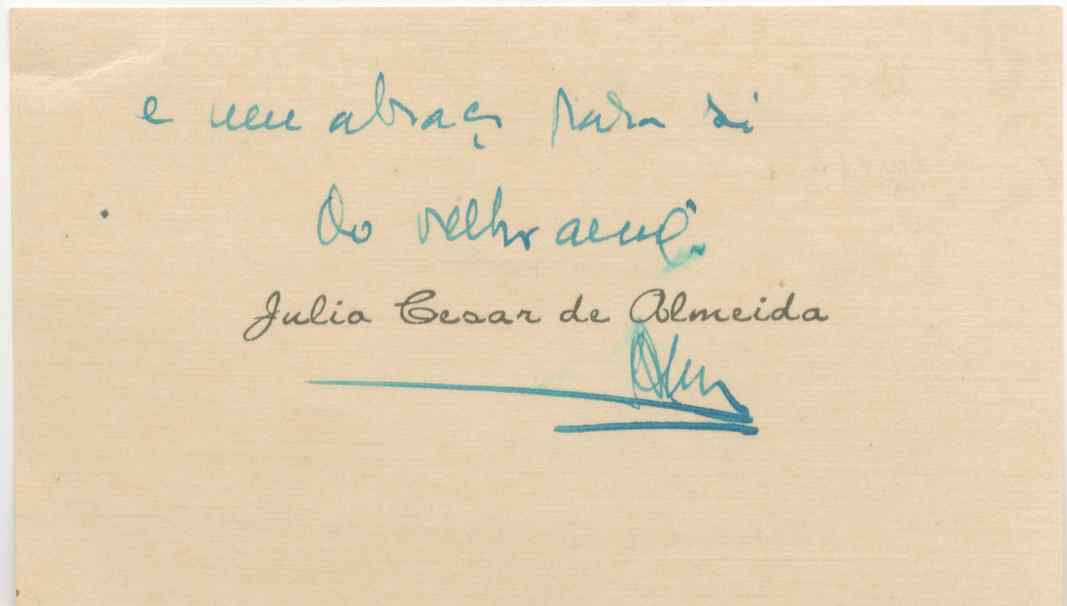 e um abraço para si
do velho amigo
Julio Cesar de Almeida